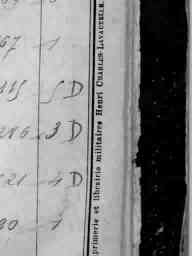 67 - 1
115 5 D
286 - 3 D
21 - 4 D
90 - 1
primerie et librairie militaires Henri CHARLES-LAVAUZELLE.